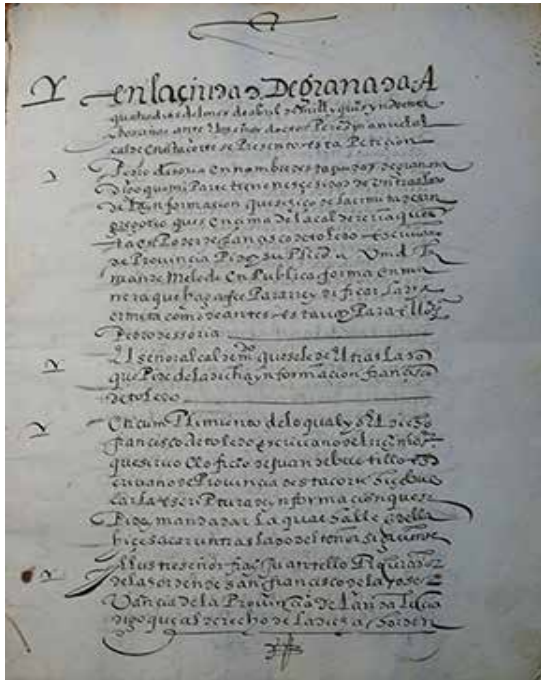 en la çiudad De granada A
quatro dias del mes de abril de mill y quios y nobenta
e dos años ante Un señor doctor
calde en esta corte se Presento esta Petiçion
Pedro de soria en nombre de de granada
Digo que mi Parte tiene neçesidad de Un traslado
de la ynformaçion que se hiço de la ermita de san
gregorio que es ençima de la calderería que es
ta en Poder de françisco de toledo escriuano
de Provinçia Pido y suplico a Vmd
mande Me le de en Publica forma en ma
nera que haga fee Para rrey dificar la
ermita como de antes estaua y Para ello
Pedro de ssoria
El señor alcalde mdo que se le de Un traslado
que Pide de la dicha ynformaçion françisco
de toledo
En cumPlimiento de lo qual yo El dicho
françisco de toledo escriuano
que sirvo El ofiçio de Juan de bustillo es
criuano de Provinçia desta corte hiçe bus
car la escriPtura de ynformaçion que se
Pide mandada dar La qual halle e della
hiçe sacar un traslado del tenor siguiente
Yllustre señor fray Juan tello Procurador
de la orden de san françisco de la obser
Vançia de la Provinçia de Landaluçia
digo que al derecho de la dicha horden